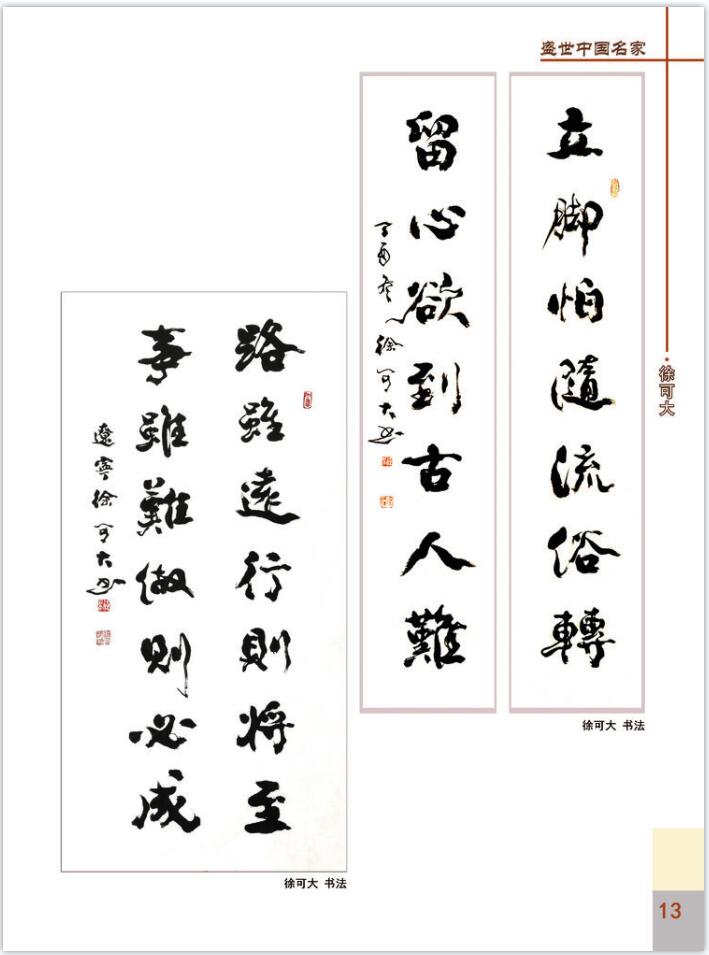 盛世中国名家
·徐可大
立脚怕隨流俗轉
留心欲到古人難
丁酉冬徐可大书
徐可大 书法
路雖遠行則將至
事雖難做则必成
遼寧徐可大书
徐可大 书法
13